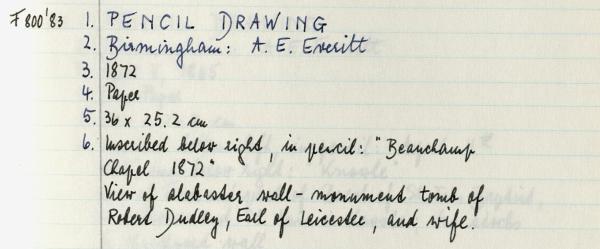 F800'83 1. PENCIL DRAWING
2. Birmingham: A. E. Everitt
3. 1872
4. Paper
5. 36 x 25.2 cm
6. Inscribed below right, in pencil: "Beauchamp
Chapel 1872"
View of alabaster wall-monument tomb of
Robert Dudley, Earl of Leicester, and wife.